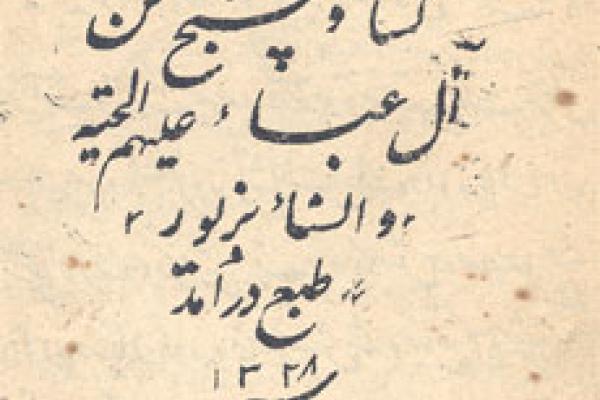 کساء و پنج تن
آل عباء علیهم التحیه
و الثناء بزیور
طبع درآمد
۱۳۲۸